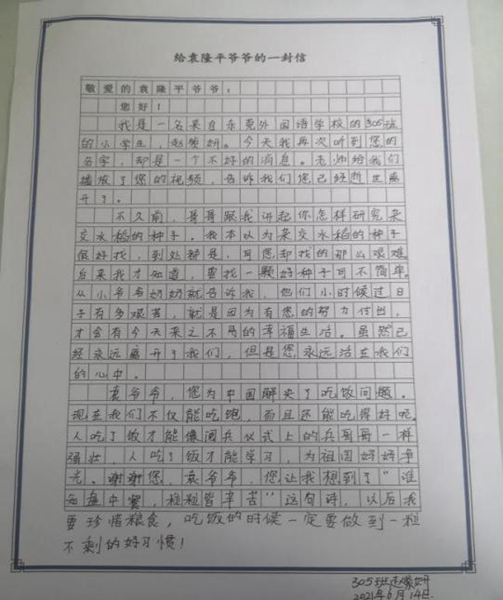 给袁隆平爷爷的一封信
敬爱的袁隆平爷爷：
您好！
我是一名来自东莞外国语学校的305班
的小学生，赵紫妍。今天我再次听到您的
名字，却是一个不好的消息。老师给我们
播放了您的视频，告诉我们您已经逝世离
开了。
不久前，哥哥跟我讲起你怎样研究杂
交水稻的种子。我本以为杂交水稻的种子
很好找，到处都是，可您却找的那么艰难。
后来我才知道，要找一颗好种子可不简单。
从小爷爷奶奶就告诉我，他们小时候过日
子有多艰苦，就是因为有您的努力付出，
才会有今天来之不易的幸福生活。虽然已
经永远离开了我们，但是您永远活在我们
的心中。
袁爷爷，您为中国解决了吃饭问题。
现在我们不仅能吃饱，而且还能吃得好呢。
人吃了饭才能像阅兵仪式上的兵哥哥一样
强壮，人吃了饭才能学习，为祖国好好争
光。谢谢您，袁爷爷，您让我想到了“谁
知盘中餐，粒粒皆辛苦”这句诗，以后我
要珍惜粮食，吃饭的时候一定要做到一粒
不剩的好习惯！
305班
2021年6月14日